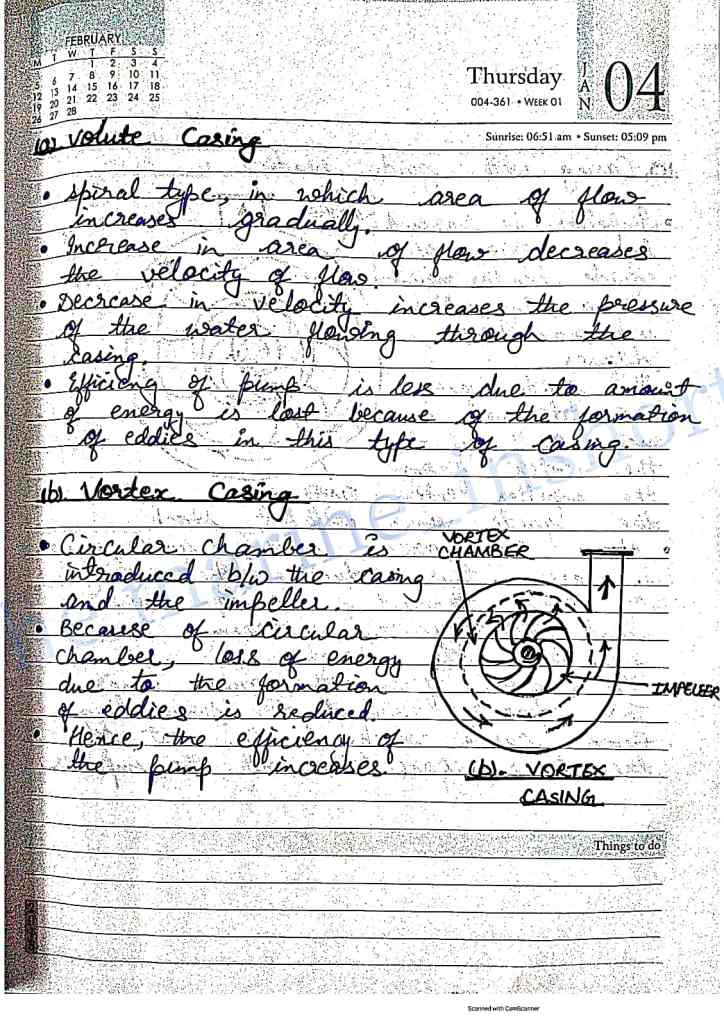 FEBRUARY
M T W T F S S
1 2 3 4
5 6 7 8 9 10 11
12 13 14 15 16 17 18
19 20 21 22 23 24 25
26 27 28
Thursday
004-361 • WEEK 01
JAN
04
Sunrise: 06:51 am • Sunset: 05:09 pm
(a) Volute Casing
• Spiral type, in which area of flow
increases gradually.
• Increase in area of flow decreases
the velocity of flow.
• Decrease in velocity increases the pressure
of the water flowing through the
casing.
• Efficieng of pump is less due to amount
of energy is lost because of the formation
of eddies in this type of casing.
(b). Vortex Casing
• Circular chamber is
introduced b/w the casing
and the impeller.
• Because of circular
chamber, loss of energy
due to the formation
of eddies is reduced.
• Hence, the efficiency of
the pump increases.
VORTEX
CHAMBER
IMPELEER
(b). VORTEX
CASING
Things to do
Scanned with CamScanner